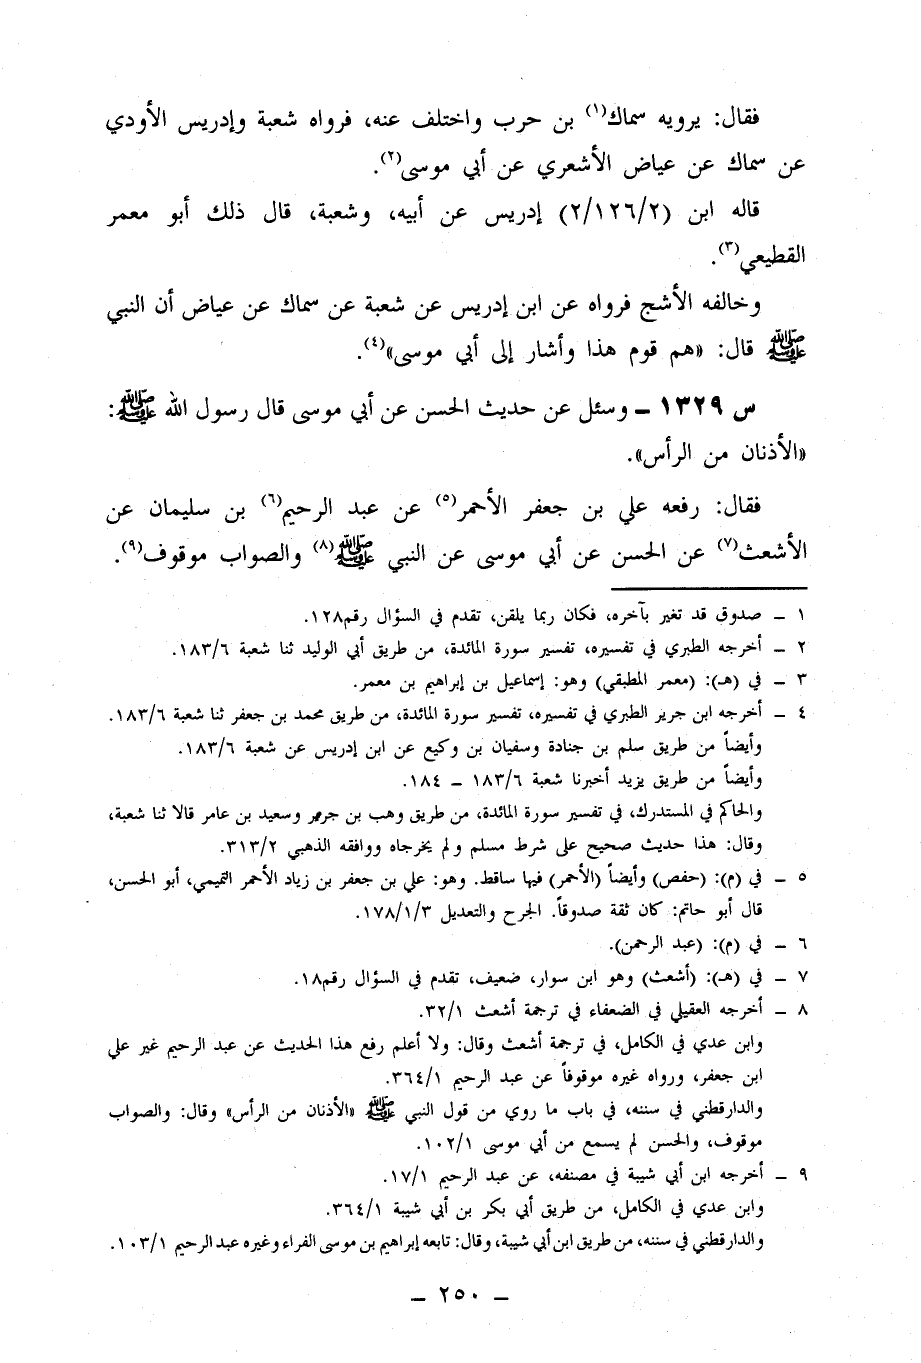 فقال: يرويه سماك(١) بن حرب واختلف عنه، فرواه شعبة وإدريس الأودي
عن سماك عن عياض الأشعري عن أبي موسى(٢).
قاله ابن (٢/١٢٦/٢) إدريس عن أبيه، وشعبة، قال ذلك أبو معمر
القطيعي(٣).
وخالفه الأشج فرواه عن ابن إدريس عن شعبة عن سماك عن عياض أن النبي
ﷺ قال: «هم قوم هذا وأشار إلى أبي موسى»(٤).
س ١٣٢٩ – وسئل عن حديث الحسن عن أبي موسى قال رسول الله ﷺ:
«الأذنان من الرأس».
فقال: رفعه علي بن جعفر الأحمر(٥) عن عبد الرحيم(٦) بن سليمان عن
الأشعث(٧) عن الحسن عن أبي موسى عن النبي ﷺ(٨) والصواب موقوف(٩).
١ – صدوق قد تغير بآخره، فكان ربما يلقن، تقدم في السؤال رقم١٢٨.
٢ – أخرجه الطبري في تفسيره، تفسير سورة المائدة، من طريق أبي الوليد ثنا شعبة ١٨٣/٦.
٣ – في (هـ): (معمر المطبقي) وهو: إسماعيل بن إبراهيم بن معمر.
٤ – أخرجه ابن جرير الطبري في تفسيره، تفسير سورة المائدة، من طريق محمد بن جعفر ثنا شعبة ١٨٣/٦.
وأيضاً من طريق سلم بن جنادة وسفيان بن وكيع عن ابن إدريس عن شعبة ١٨٣/٦.
وأيضاً من طريق يزيد أخبرنا شعبة ١٨٣/٦ – ١٨٤.
والحاكم في المستدرك، في تفسير سورة المائدة، من طريق وهب بن جرير وسعيد بن عامر قالا ثنا شعبة،
وقال: هذا حديث صحيح على شرط مسلم ولم يخرجاه ووافقه الذهبي ٣١٣/٢.
٥ – في (م): (حفص) وأيضاً (الأحمر) فيها ساقط. وهو: علي بن جعفر بن زياد الأحمر التميمي، أبو الحسن،
قال أبو حاتم: كان ثقة صدوقاً. الجرح والتعديل ١٧٨/١/٣.
٦ – في (م): (عبد الرحمن).
٧ – في (هـ): (أشعث) وهو ابن سوار، ضعيف، تقدم في السؤال رقم١٨.
٨ – أخرجه العقيلي في الضعفاء في ترجمة أشعث ٣٢/١.
وابن عدي في الكامل، في ترجمة أشعث وقال: ولا أعلم رفع هذا الحديث عن عبد الرحيم غير علي
ابن جعفر، ورواه غيره موقوفاً عن عبد الرحيم ٣٦٤/١.
والدارقطني في سننه، في باب ما روي من قول النبي ﷺ «الأذنان من الرأس» وقال: والصواب
موقوف، والحسن لم يسمع من أبي موسى ١٠٢/١.
٩ – أخرجه ابن أبي شيبة في مصنفه، عن عبد الرحيم ١٧/١.
وابن عدي في الكامل، من طريق أبي بكر بن أبي شيبة ٣٦٤/١.
والدارقطني في سننه، من طريق ابن أبي شيبة، وقال: تابعه إبراهيم بن موسى الفراء وغيره عبد الرحيم ١٠٣/١.
– ٢٥٠ –